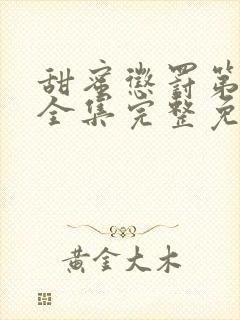 甜蜜惩罚第
全集完整免
黄金大木